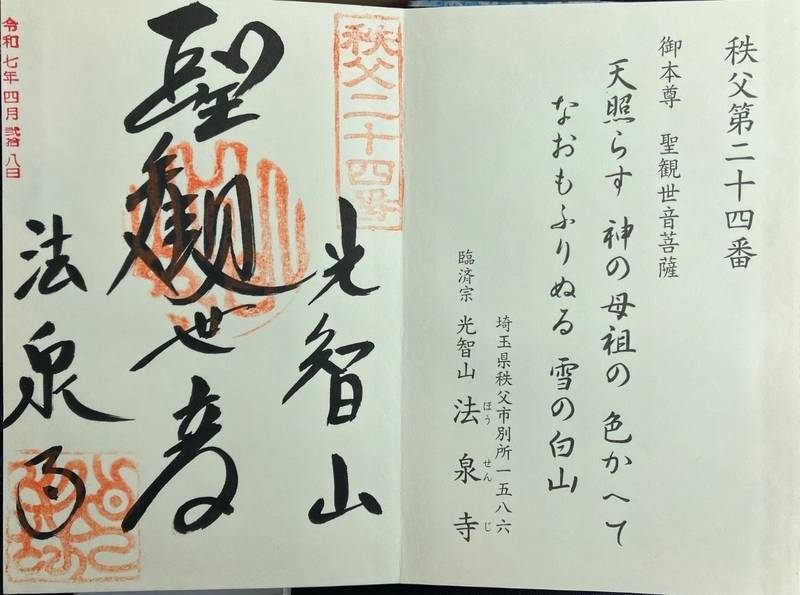 秩父第二十四番
御本尊 聖観世音菩薩
天照らす 神の母祖の 色かへて
なおもふりぬる 雪の白山
埼玉県秩父市別所一五八六
臨済宗 光智山 法泉寺
ほう せん じ
秩父二十四番
光智山
聖観世音
法泉寺
令和七年四月弐拾八日